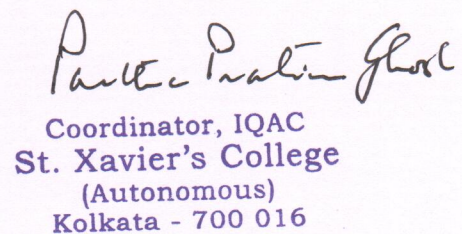 Partha Pratim Ghosh
Coordinator, IQAC
St. Xavier's College
(Autonomous)
Kolkata - 700 016